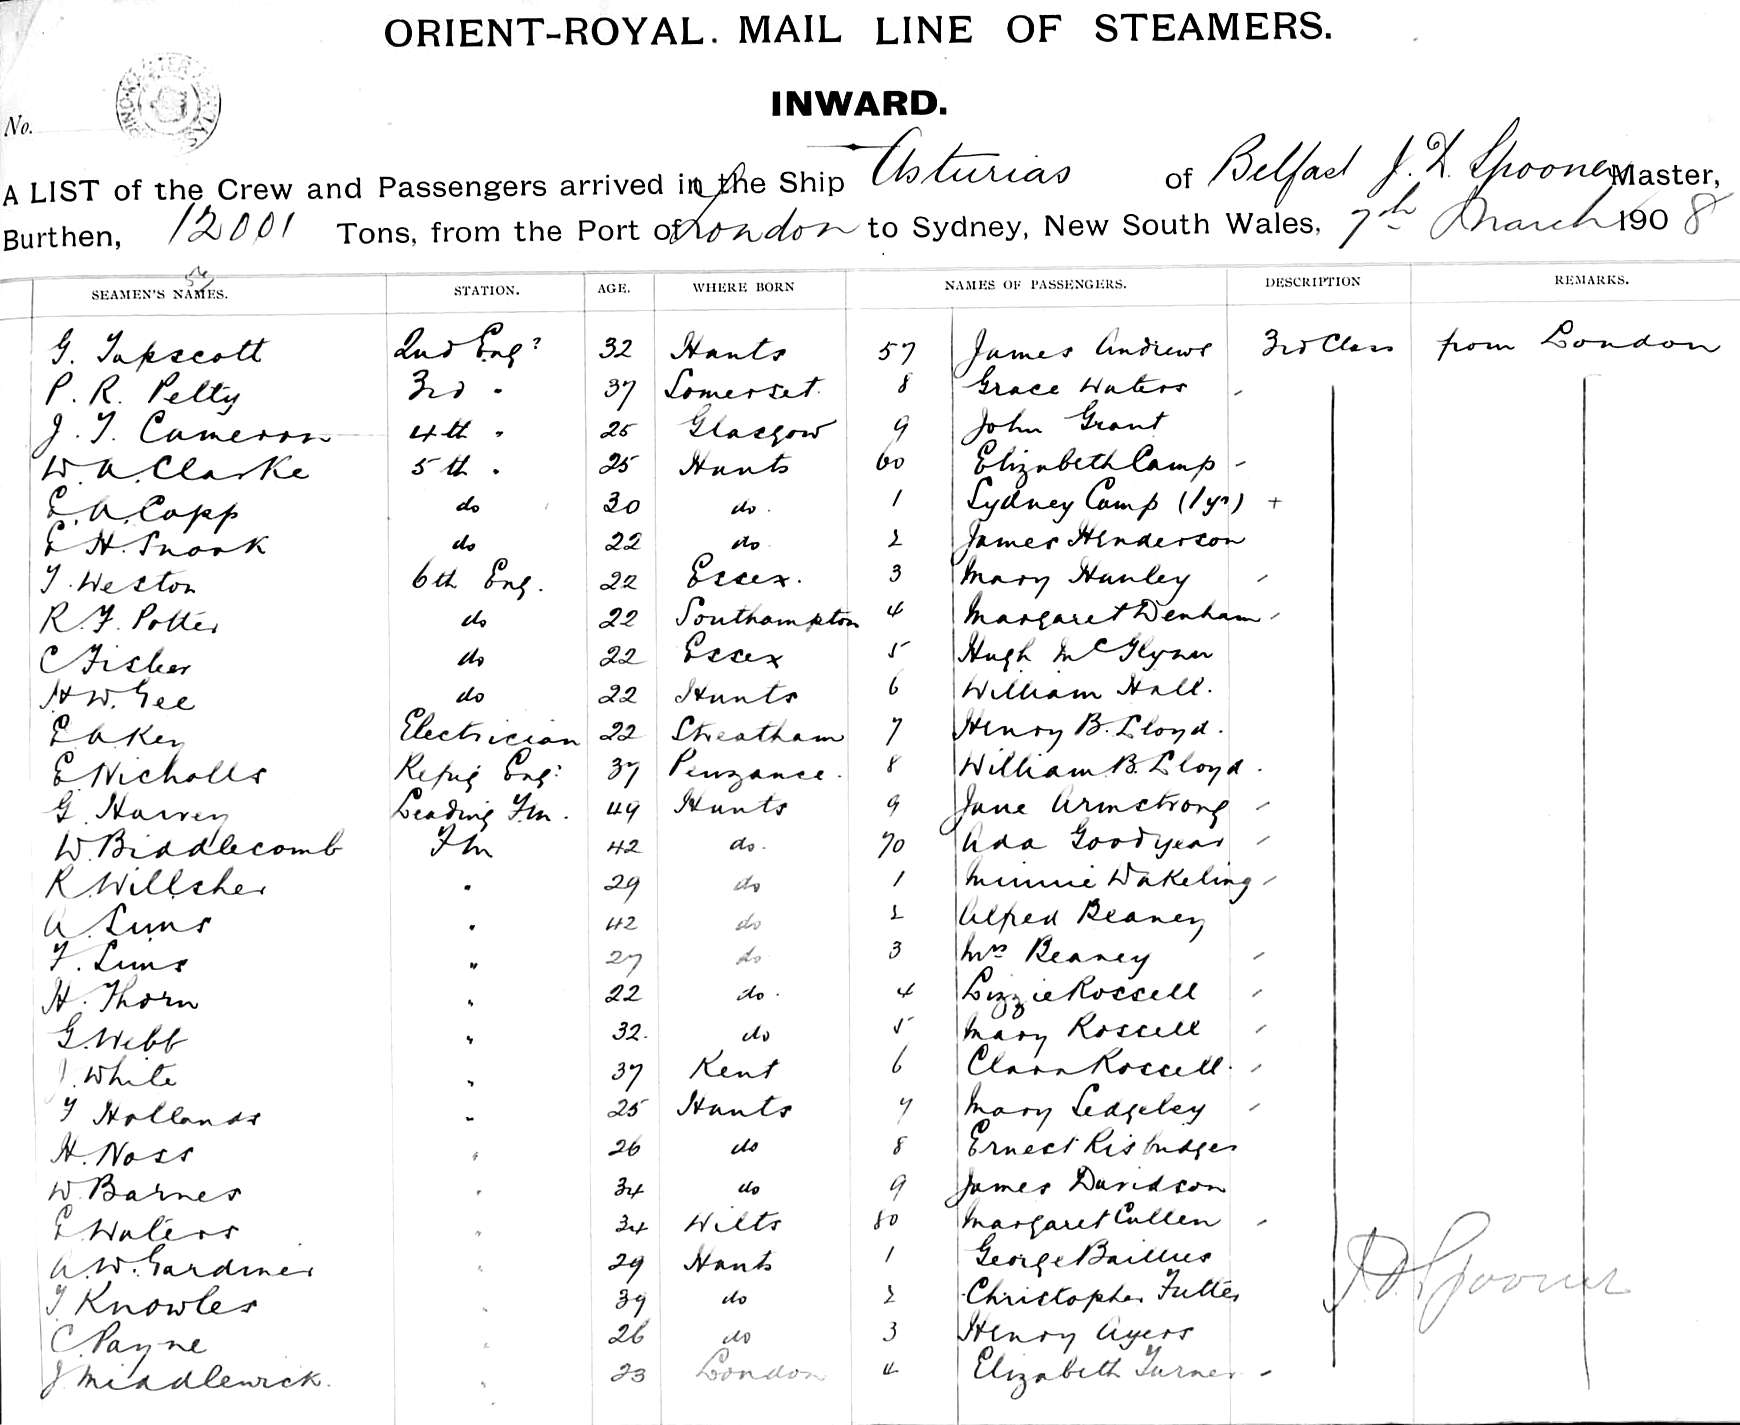 ORIENT-ROYAL. MAIL LINE OF STEAMERS.
INWARD.
No.
A LIST of the Crew and Passengers arrived in the Ship Asturias of Belfast J. D. Spooner Master,
Burthen, 12001 Tons, from the Port of London to Sydney, New South Wales, 7th March 1908
SEAMEN'S NAMES. STATION. AGE. WHERE BORN NAMES OF PASSENGERS. DESCRIPTION REMARKS.
G. Tapscott 2nd Engr 32 Hants 57 James Andrews 3rd Class from London
P. R. Pelty 3rd " 37 Somerset. 8 Grace Waters
J. T. Cameron 4th " 25 Glasgow 9 John Grant
W. A. Clarke 5th " 25 Hants 60 Elizabeth Camp
E. A. Capp do 30 do. 1 Sydney Camp (1yr) +
E H. Snook do 22 do 2 James Henderson
T. Weston 6th Eng. 22 Essex. 3 Mary Hanley
R. F. Potter do 22 Southampton 4 Margaret Denham
C Fisher do 22 Essex 5 Hugh McGlynn
H W. Gee do 22 Hants 6 William Hall.
E A Key Electrician 22 Streatham 7 Henry B. Lloyd.
E. Nicholls Refrig Engr 37 Penzance. 8 William B. Lloyd.
G. Harvey Leading Fm. 49 Hants 9 Jane Armstrong
W. Biddlecomb Fm 42 do. 70 Ada Goodyear
R. Willsher " 29 do 1 Minnie Wakeling
A. Sims " 42 do 2 Alfred Beaney
F. Sims " 27 do 3 Mrs Beaney
H. Thorn " 22 do. 4 Lizzie Rossell
G. Webb " 32. do 5 Mary Rossell
J. White " 37 Kent 6 Clara Rossell.
T Hollands " 25 Hants 7 Mary Sedgeley
H. Noss " 26 do 8 Ernest Risbridger
W. Barnes " 34 do 9 James Davidson
E Waters " 34 Wilts 80 Margaret Cullen
A. W. Gardiner " 29 Hants 1 George Baillies
T Knowles " 39 do 2 Christopher Futter
C. Payne " 26 do 3 Henry Ayers
J Middlewick. " 23 London 4 Elizabeth Turner
J. D. Spooner